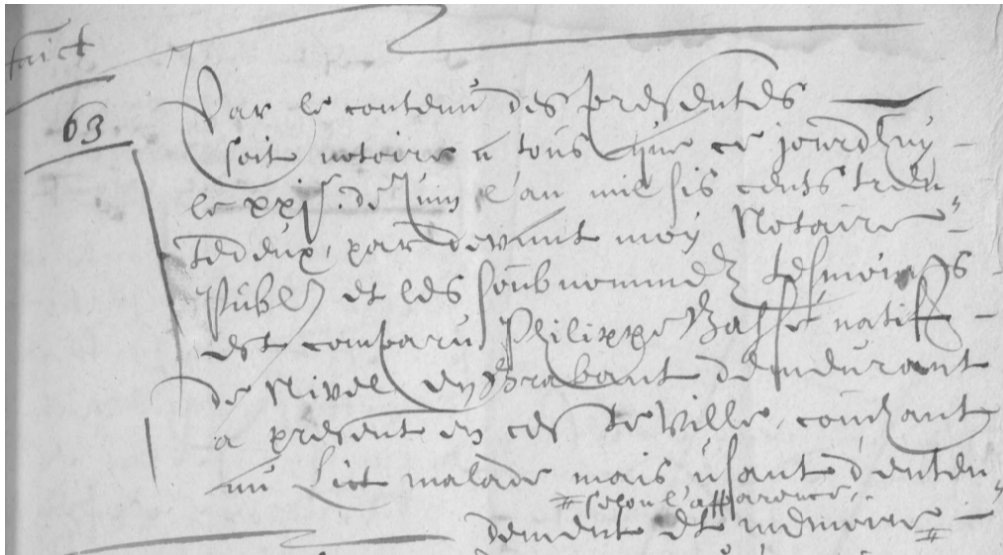 faict
63
Par le contenu des presentes
soit notoire a tous que ce jourdhuy
le xxjs. de Juin l'an mil sis cents tren-
tedeux, par devant moy Notaire
Publ. et les soubnommez tesmoings
est comparu Philippe natif
de Nivel en Brabant demeurant
a present en ceste Ville, couchant
au lict malade mais usant d'enten-
selon l'apparence
dement et memoire